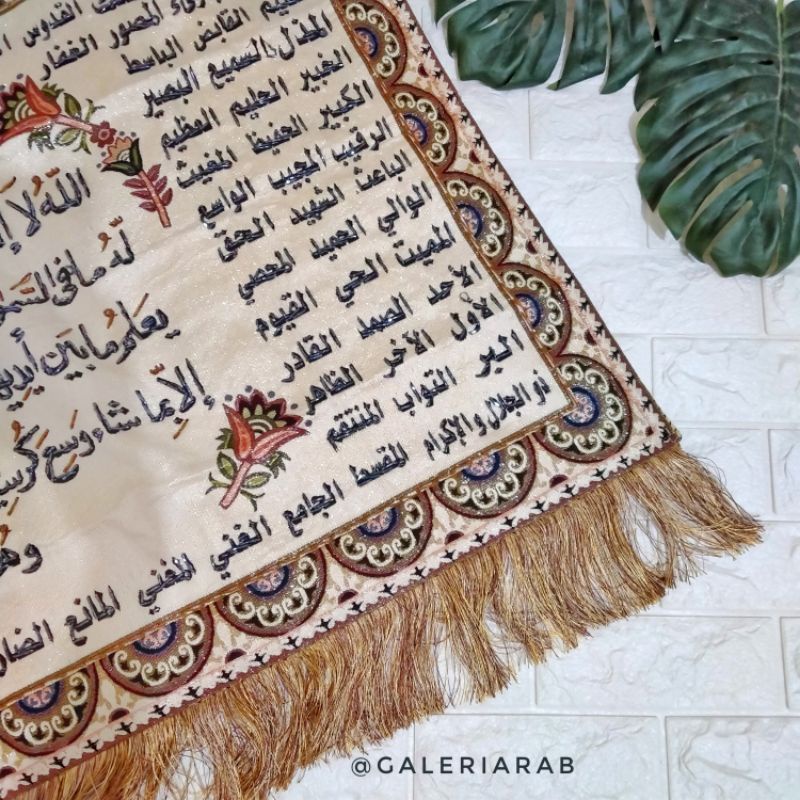 القدوس
المصور الغفار
القابض الباسط
المذل السميع البصير
الخبير الحليم العظيم
الكبير الحفيظ المغيث
الرقيب المجيب الواسع
الباعث الشهيد الحق
الوالي الحميد المحصي
المميت الحي القيوم
الأحد الصمد القادر
الأول الآخر الظاهر
البر التواب المنتقم
ذو الجلال والإكرام المقسط الجامع الغني المغني المانع
الله لا
له ما في
يعلم ما بين
إلا بما شاء وسع
وهو
@GALERIARAB